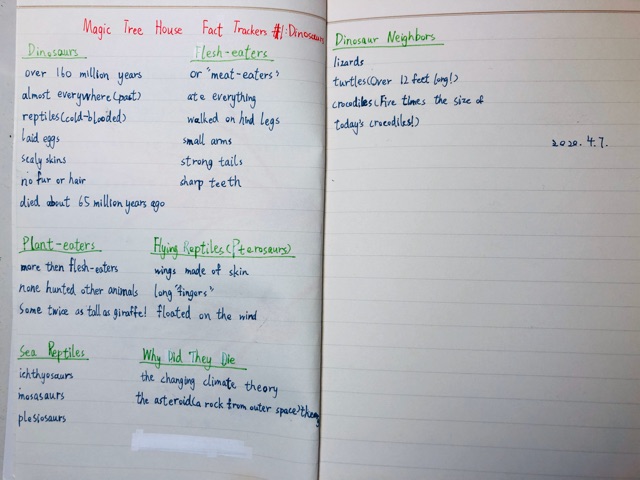 Magic Tree House Fact Trackers #1: Dinosaurs
Dinosaurs
over 160 million years
almost everywhere (past)
reptiles (cold-blooded)
laid eggs
scaly skins
no fur or hair
died about 65 million years ago
Flesh-eaters
or "meat-eaters"
ate everything
walked on hind legs
small arms
strong tails
sharp teeth
Plant-eaters
more then flesh-eaters
none hunted other animals
some twice as tall as giraffe!
Flying Reptiles (Pterosaurs)
wings made of skin
long "fingers"
floated on the wind
Sea Reptiles
ichthyosaurs
mosasaurs
plesiosaurs
Why Did They Die
the changing climate theory
the asteroid (a rock from outer space) theory
Dinosaur Neighbors
lizards
turtles (Over 12 feet long!)
crocodiles (Five times the size of
today's crocodiles!)
2020.4.7.